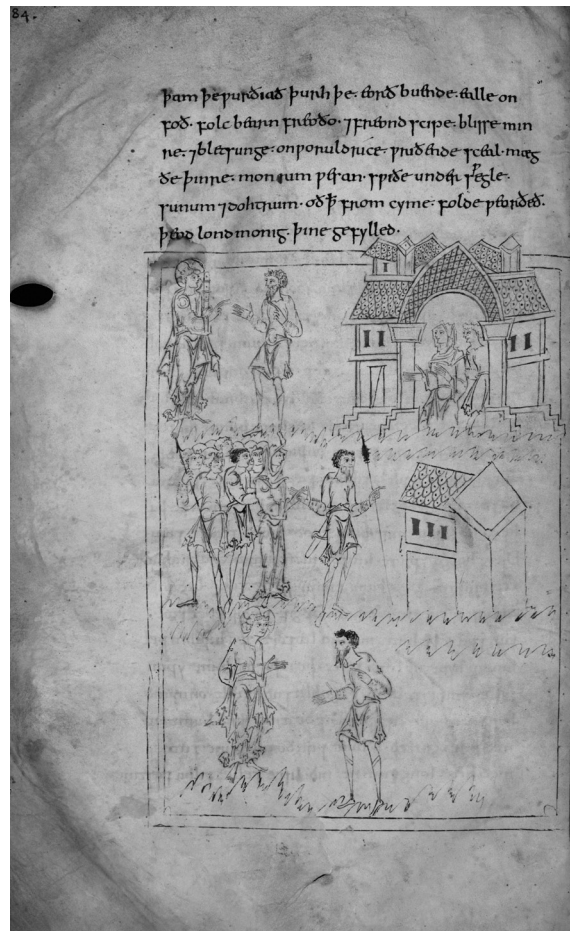 84.
þam þe ƿurðiað þurh þe· eorð buende· ealle on
foð· folc bearn freoðo· ⁊ freond scipe· blisse min
re· ⁊ bletsunge· on ƿoruld rice· ƿriðende sceal· mæg
ðe þinre· mon rim ƿesan· sƿiðe under sƿegle·
sunum ⁊ dohtrum· oð ꝥ from cyme· folde ƿeorðeð·
þeod lond monig· þine gefylled·